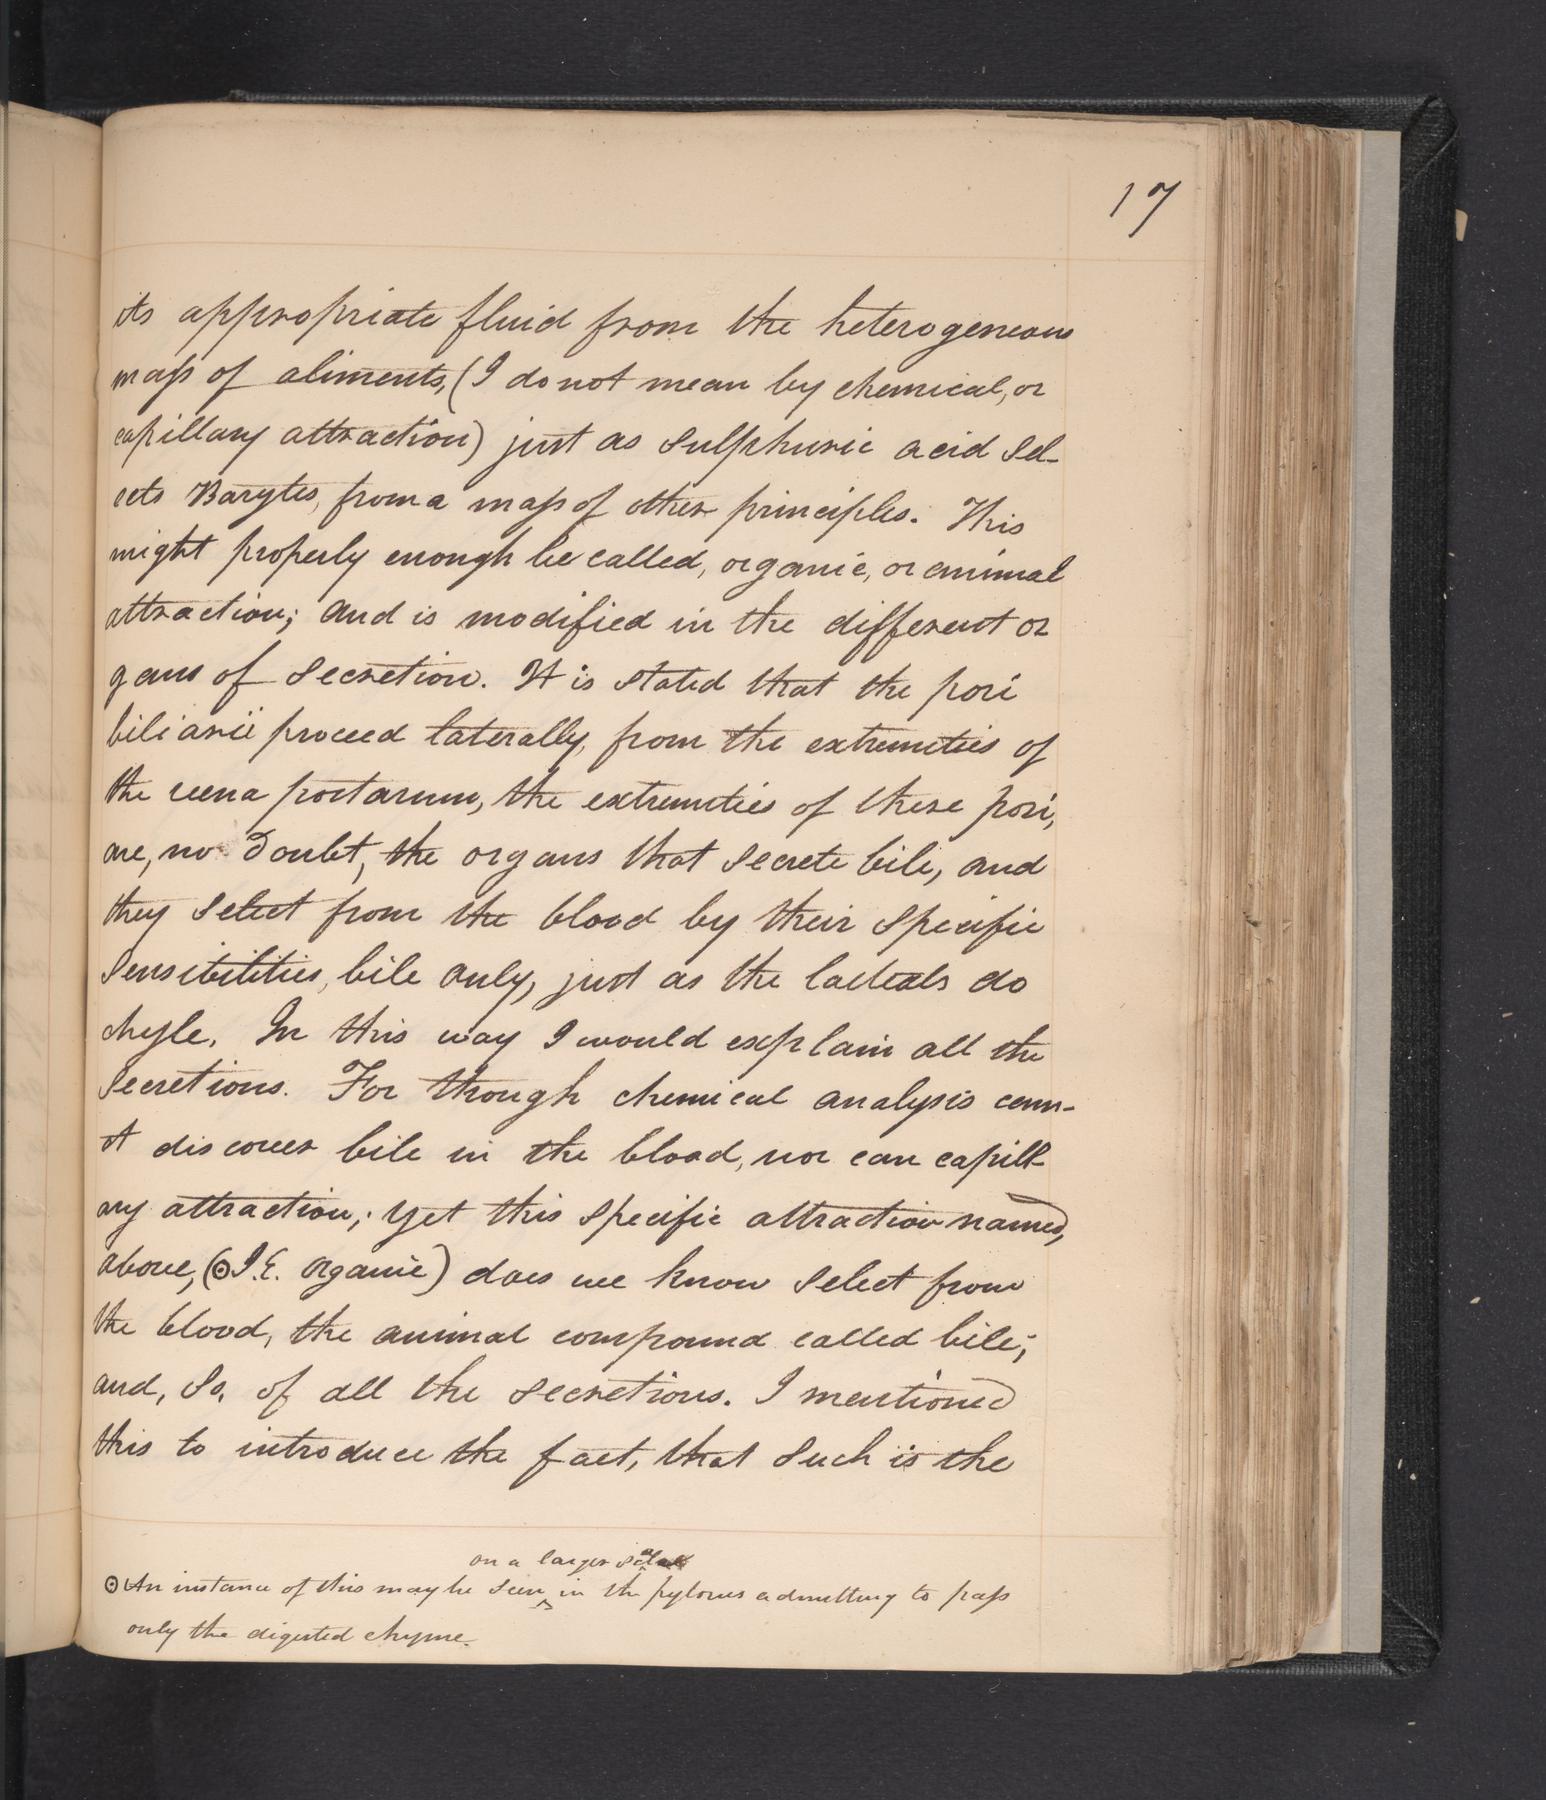 17
its appropriate fluid from the heterogeneous
mass of aliments, (I do not mean by chemical, or
capillary attraction) just as Sulphuric acid Sel-
ects Barytes, from a mass of other principles. This
might properly enough be called, organic, or animal
attraction; and is modified in the different or
gans of Secretion. It is stated that the pori
biliarii proceed laterally, from the extremities of
the veena portarum, the extremities of these pori,
are, no doubt, the organs that Secrete bile, and
they Select from the blood by their Specific
Sensibilities, bile only, just as the lacteals do
chyle. In this way I would explain all the
Secretions. For though chemical analysis cann-
ot discover bile in the blood, nor can capill-
ary attraction; yet this Specific attraction named,
above, (⊙I.E. organic) does we know Select from
the blood, the animal compound called bile;
and, So, of all the Secretions. I mentioned
this to introduce the fact, that Such is the
on a larger Scale
⊙An instance of this may be Seen in the pylorus admitting to pass
only the digested chyme.